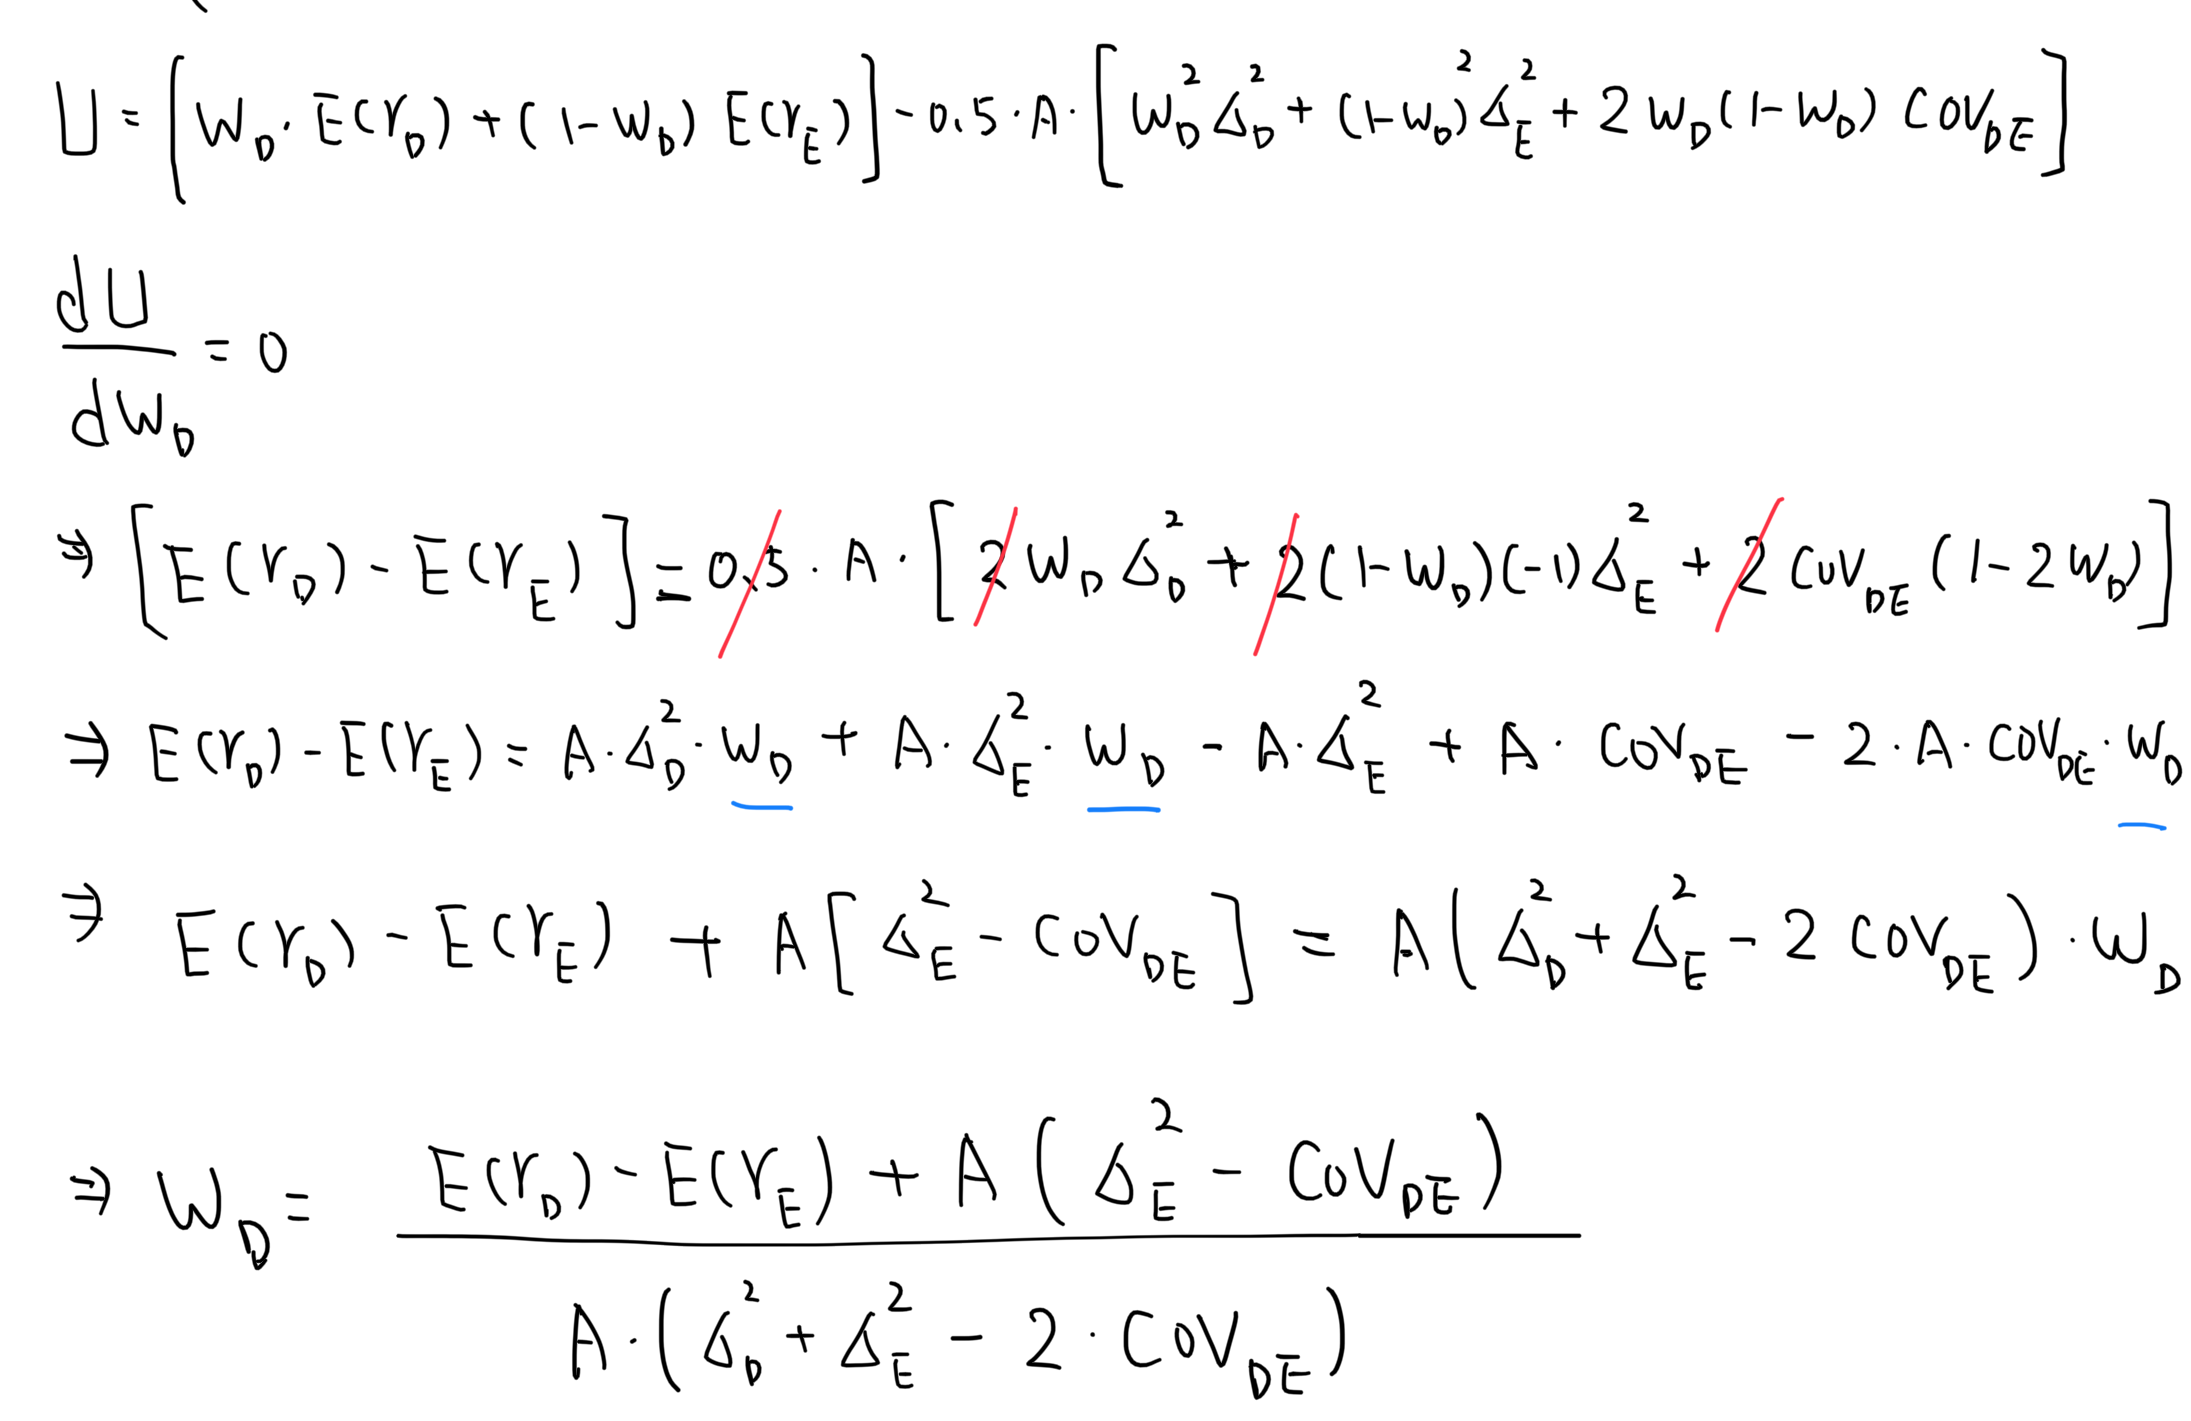 U = [W_D · E(r_D) + (1-W_D) E(r_E)] - 0.5 · A · [W_D² Δ_D² + (1-W_D)² Δ_E² + 2 W_D (1-W_D) COV_DE]
dU/dW_D = 0
⇒ [E(r_D) - E(r_E)] = 0.5 · A · [2 W_D Δ_D² + 2(1-W_D)(-1) Δ_E² + 2 COV_DE (1-2W_D)]
⇒ E(r_D) - E(r_E) = A · Δ_D² · W_D + A · Δ_E² · W_D - A · Δ_E² + A · COV_DE - 2 · A · COV_DE · W_D
⇒ E(r_D) - E(r_E) + A[Δ_E² - COV_DE] = A(Δ_D² + Δ_E² - 2 COV_DE) · W_D
⇒ W_D = (E(r_D) - E(r_E) + A(Δ_E² - COV_DE)) / (A · (Δ_D² + Δ_E² - 2 · COV_DE))